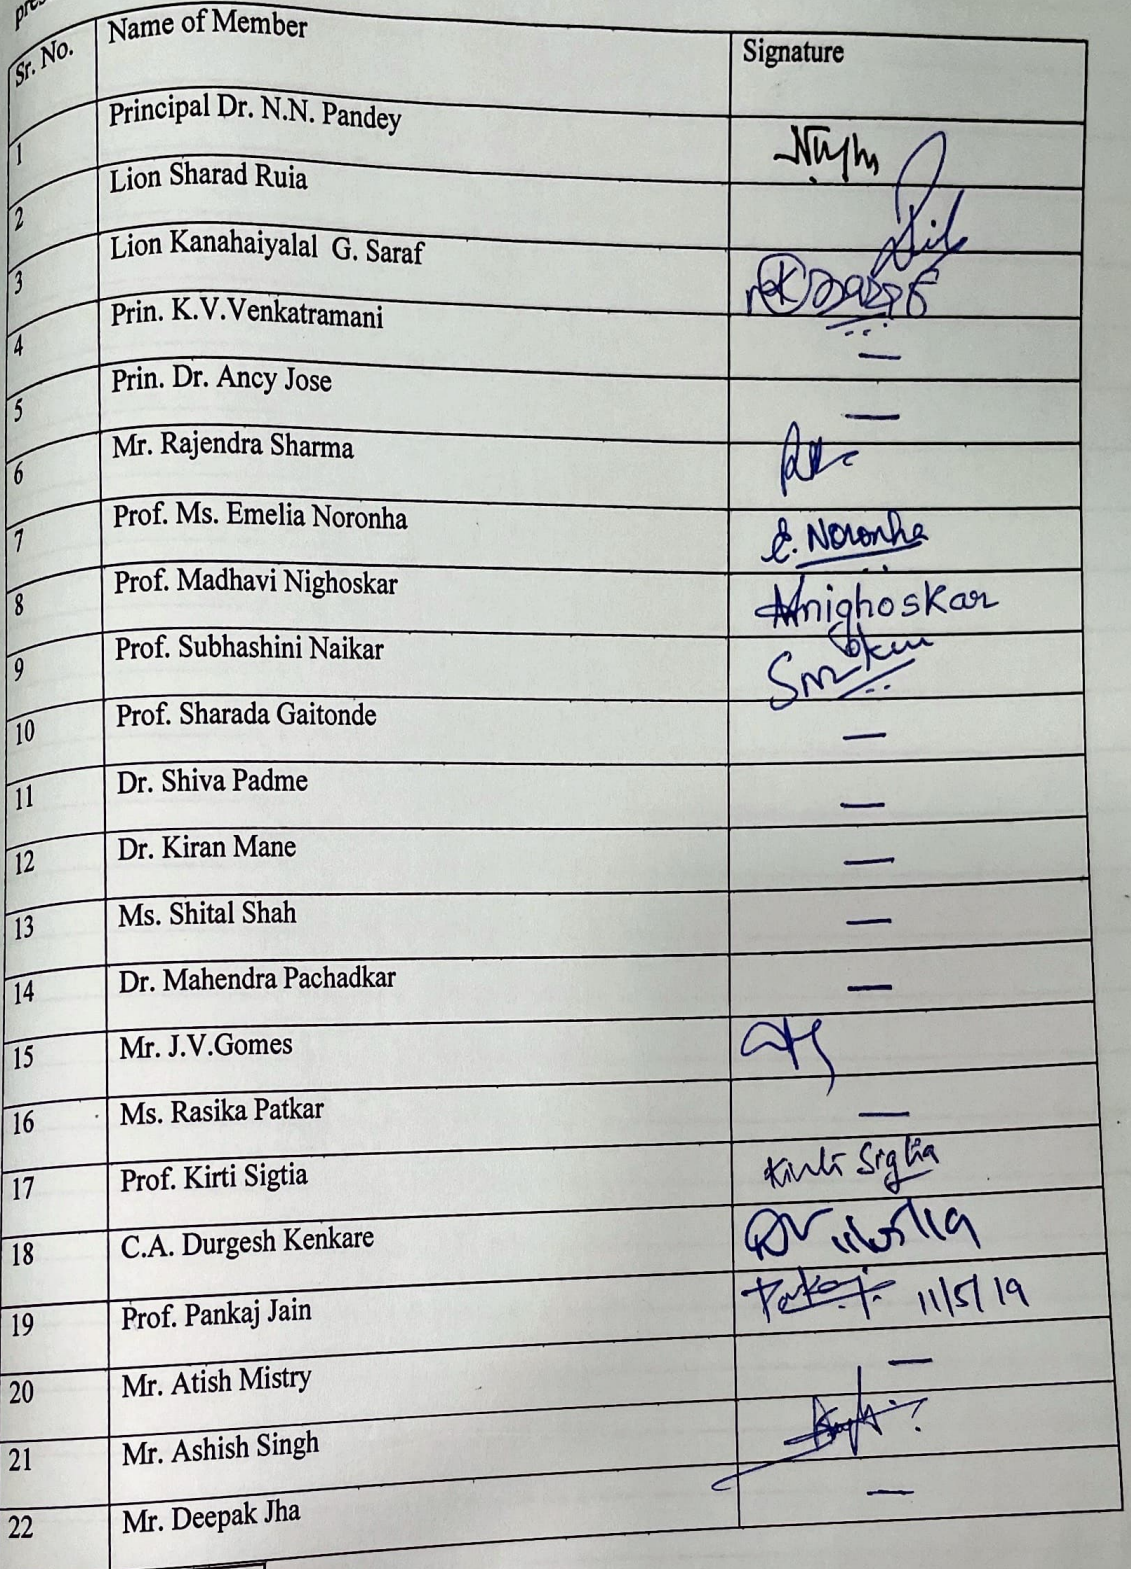 Sr. No. Name of Member Signature
1 Principal Dr. N.N. Pandey
2 Lion Sharad Ruia
3 Lion Kanahaiyalal G. Saraf
4 Prin. K.V.Venkatramani —
5 Prin. Dr. Ancy Jose —
6 Mr. Rajendra Sharma
7 Prof. Ms. Emelia Noronha E. Noronha
8 Prof. Madhavi Nighoskar Mnighoskar
9 Prof. Subhashini Naikar
10 Prof. Sharada Gaitonde —
11 Dr. Shiva Padme —
12 Dr. Kiran Mane —
13 Ms. Shital Shah —
14 Dr. Mahendra Pachadkar —
15 Mr. J.V.Gomes
16 Ms. Rasika Patkar —
17 Prof. Kirti Sigtia Kirti Sigtia
18 C.A. Durgesh Kenkare 11/05/19
19 Prof. Pankaj Jain Pankaj 11/5/19
20 Mr. Atish Mistry —
21 Mr. Ashish Singh
22 Mr. Deepak Jha —